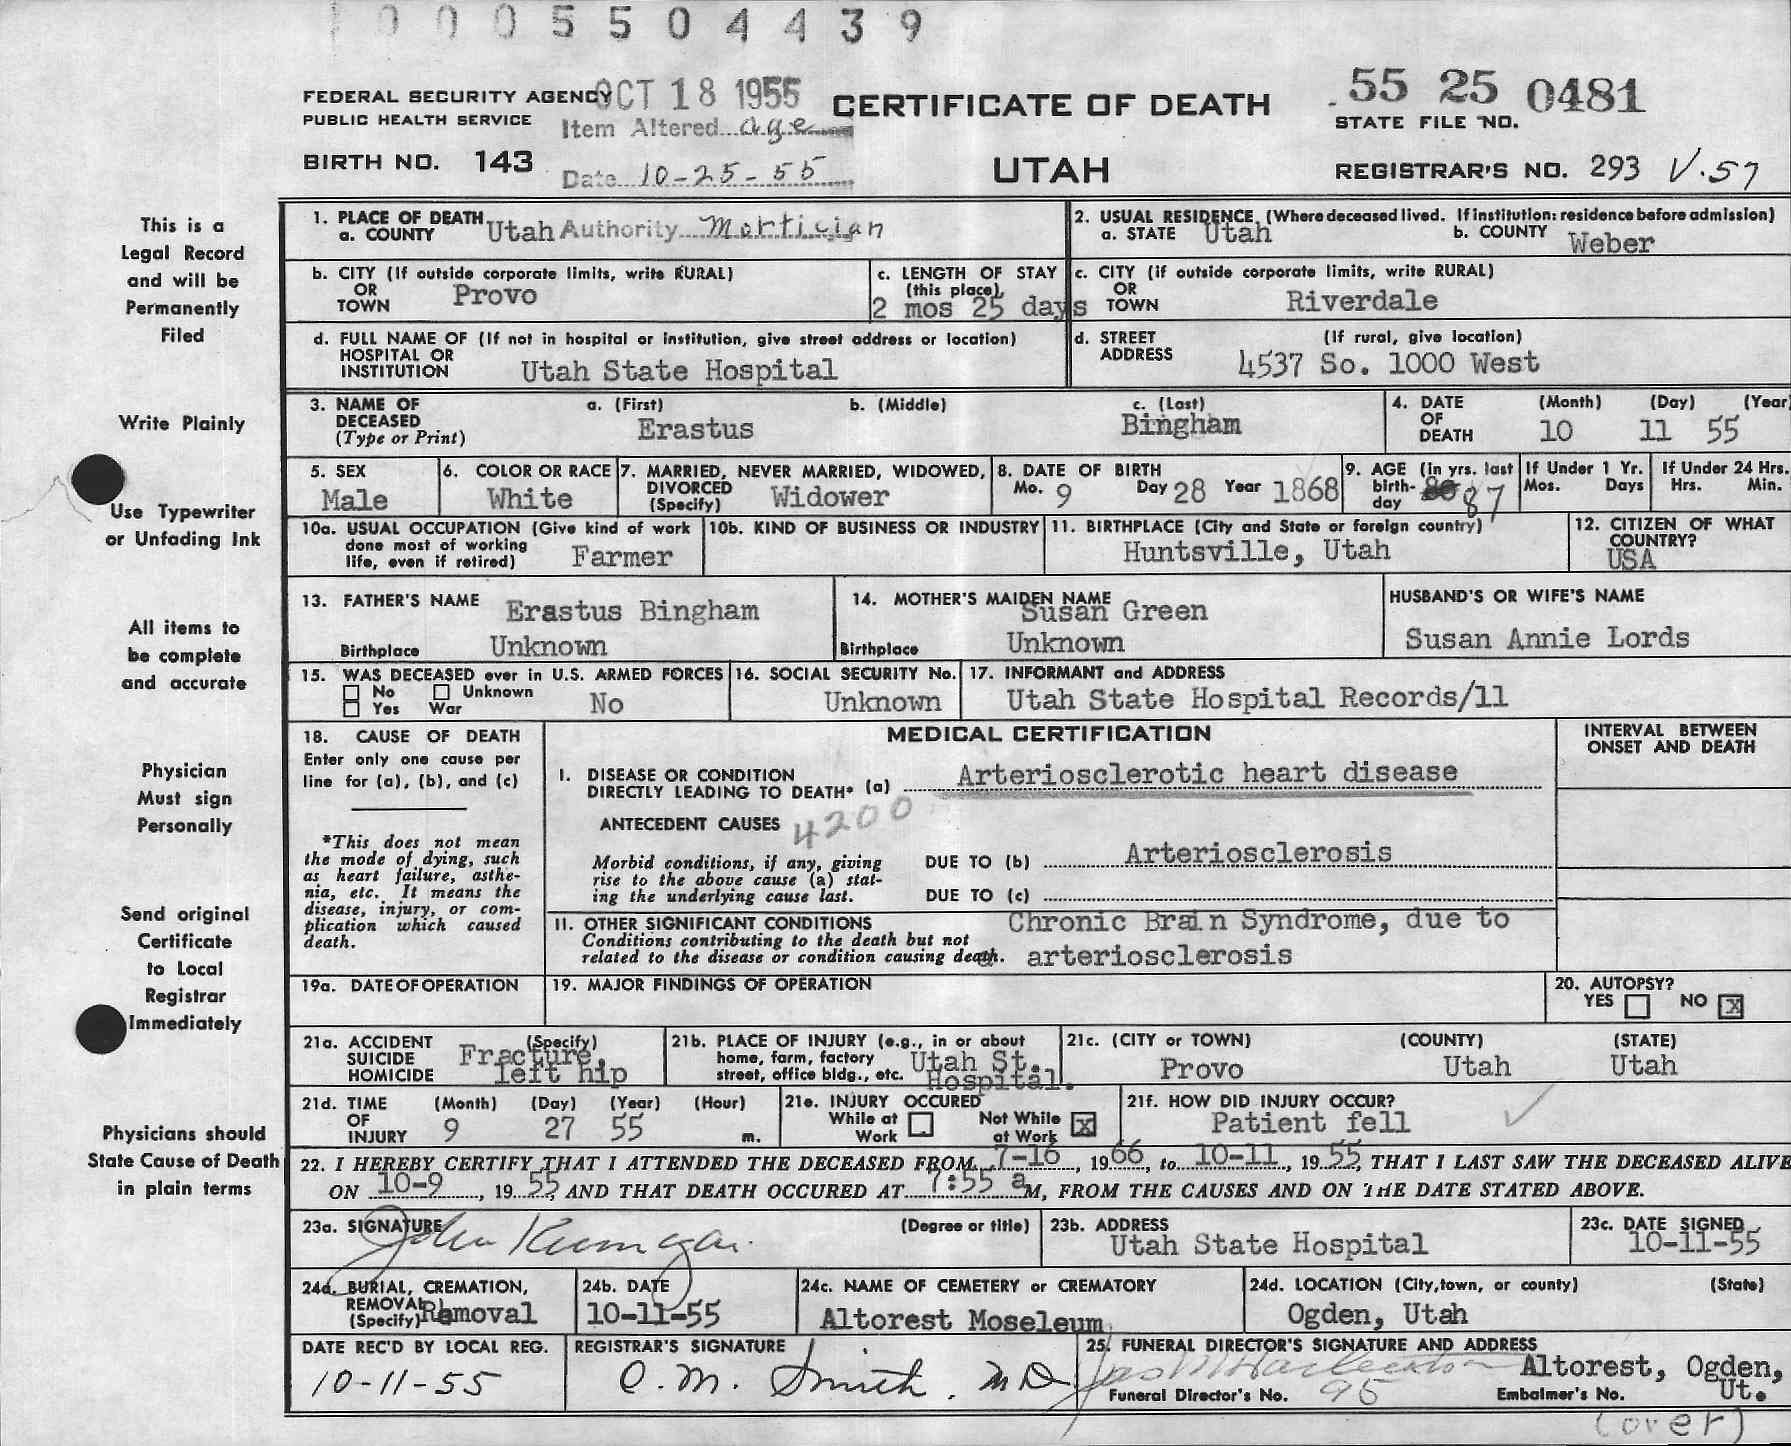 0005504439
FEDERAL SECURITY AGENCY
PUBLIC HEALTH SERVICE
OCT 18 1955
Item Altered age
Date 10-25-55
BIRTH NO. 143
CERTIFICATE OF DEATH
UTAH
55 25 0481
STATE FILE NO.
REGISTRAR'S NO. 293 V.57
This is a
Legal Record
and will be
Permanently
Filed
Write Plainly
Use Typewriter
or Unfading Ink
All items to
be complete
and accurate
Physician
Must sign
Personally
Send original
Certificate
to Local
Registrar
Immediately
Physicians should
State Cause of Death
in plain terms
1. PLACE OF DEATH
a. COUNTY Utah Authority Mortician
2. USUAL RESIDENCE (Where deceased lived. If institution: residence before admission)
a. STATE Utah b. COUNTY Weber
b. CITY (If outside corporate limits, write RURAL)
OR
TOWN Provo
c. LENGTH OF STAY
(this place)
2 mos 25 days
c. CITY (if outside corporate limits, write RURAL)
OR
TOWN Riverdale
d. FULL NAME OF (If not in hospital or institution, give street address or location)
HOSPITAL OR
INSTITUTION Utah State Hospital
d. STREET (If rural, give location)
ADDRESS 4537 So. 1000 West
3. NAME OF a. (First) b. (Middle) c. (Last)
DECEASED
(Type or Print) Erastus Bingham
4. DATE (Month) (Day) (Year)
OF
DEATH 10 11 55
5. SEX
Male
6. COLOR OR RACE
White
7. MARRIED, NEVER MARRIED, WIDOWED,
DIVORCED
(Specify) Widower
8. DATE OF BIRTH
Mo. 9 Day 28 Year 1868
9. AGE (in yrs. last
birth-
day 87
If Under 1 Yr.
Mos. Days
If Under 24 Hrs.
Hrs. Min.
10a. USUAL OCCUPATION (Give kind of work
done most of working
life, even if retired) Farmer
10b. KIND OF BUSINESS OR INDUSTRY
11. BIRTHPLACE (City and State or foreign country)
Huntsville, Utah
12. CITIZEN OF WHAT
COUNTRY?
USA
13. FATHER'S NAME Erastus Bingham
Birthplace Unknown
14. MOTHER'S MAIDEN NAME
Susan Green
Birthplace Unknown
HUSBAND'S OR WIFE'S NAME
Susan Annie Lords
15. WAS DECEASED ever in U.S. ARMED FORCES
No Unknown
Yes War No
16. SOCIAL SECURITY No.
Unknown
17. INFORMANT and ADDRESS
Utah State Hospital Records/11
18. CAUSE OF DEATH
Enter only one cause per
line for (a), (b), and (c)
*This does not mean
the mode of dying, such
as heart failure, asthe-
nia, etc. It means the
disease, injury, or com-
plication which caused
death.
MEDICAL CERTIFICATION
INTERVAL BETWEEN
ONSET AND DEATH
I. DISEASE OR CONDITION
DIRECTLY LEADING TO DEATH* (a) Arteriosclerotic heart disease
ANTECEDENT CAUSES 4200
Morbid conditions, if any, giving
rise to the above cause (a) stat-
ing the underlying cause last.
DUE TO (b) Arteriosclerosis
DUE TO (c)
II. OTHER SIGNIFICANT CONDITIONS
Conditions contributing to the death but not
related to the disease or condition causing death.
Chronic Brain Syndrome, due to
arteriosclerosis
19a. DATE OF OPERATION
19. MAJOR FINDINGS OF OPERATION
20. AUTOPSY?
YES NO X
21a. ACCIDENT (Specify)
SUICIDE
HOMICIDE
Fracture,
left hip
21b. PLACE OF INJURY (e.g., in or about
home, farm, factory
street, office bldg., etc.
Utah St.
Hospital.
21c. (CITY or TOWN) (COUNTY) (STATE)
Provo Utah Utah
21d. TIME (Month) (Day) (Year) (Hour)
OF
INJURY 9 27 55 m.
21e. INJURY OCCURED
While at
Work
Not While
at Work X
21f. HOW DID INJURY OCCUR?
Patient fell
22. I HEREBY CERTIFY THAT I ATTENDED THE DECEASED FROM 7-16, 1966, to 10-11, 1955, THAT I LAST SAW THE DECEASED ALIVE
ON 10-9, 1955, AND THAT DEATH OCCURED AT 7:55 a M, FROM THE CAUSES AND ON THE DATE STATED ABOVE.
23a. SIGNATURE (Degree or title)
John
23b. ADDRESS
Utah State Hospital
23c. DATE SIGNED
10-11-55
24a. BURIAL, CREMATION,
REMOVAL
(Specify) Removal
24b. DATE
10-11-55
24c. NAME OF CEMETERY or CREMATORY
Altorest Moseleum
24d. LOCATION (City, town, or county) (State)
Ogden, Utah
DATE REC'D BY LOCAL REG.
10-11-55
REGISTRAR'S SIGNATURE
C. M. Smith, MD
25. FUNERAL DIRECTOR'S SIGNATURE AND ADDRESS
Altorest, Ogden,
Ut.
Funeral Director's No. 95 Embalmer's No.
(over)